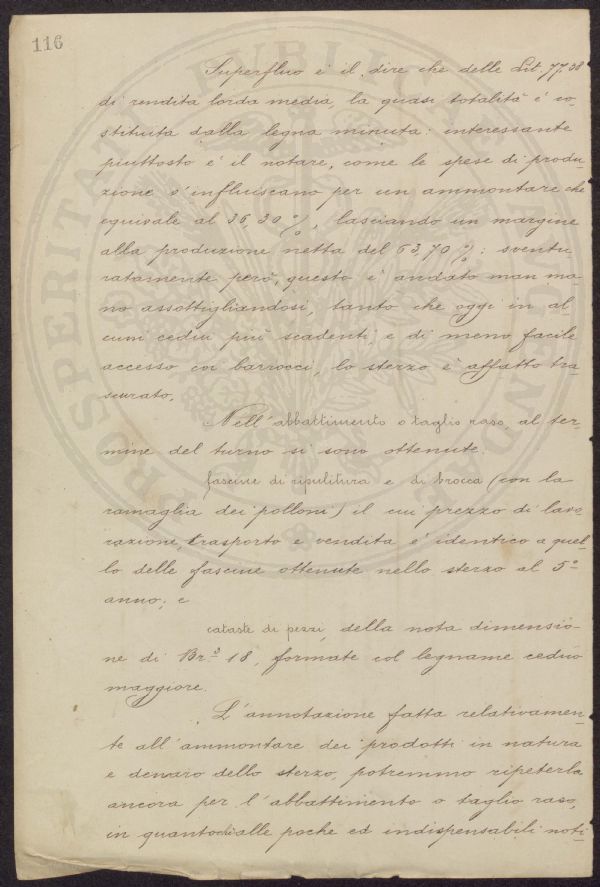 116
PROSPERITATI PUBLICAE AUGENDAE
Superfluo è il dire che delle Lit. 77,08
di rendita lorda media, la quasi totalità è co-
stituita dalla legna minuta: interessante
piuttosto è il notare, come le spese di produ-
zione v'influiscano per un ammontare che
equivale al 36,30 %, lasciando un margine
alla produzione netta del 63,70 %: sventu
ratamente però, questo è andato man ma-
no assottigliandosi, tanto che oggi in al
cuni cedui più scadenti, e di meno facile
accesso coi barrocci, lo sterzo è affatto tra-
scurato.
Nell'abbattimento o taglio raso, al ter-
mine del turno si sono ottenute.
fascine di ripulitura e di brocca (con la
ramaglia dei polloni) il cui prezzo di lavo-
razione, trasporto e vendita è identico a quel-
lo delle fascine ottenute nello sterzo al 5°
anno; e
cataste di pezzi, della nota dimensio-
ne di Br.³ 18, formate col legname ceduo
maggiore.
L'annotazione fatta relativamen-
te all'ammontare dei prodotti in natura
e denaro dello sterzo, potremmo ripeterla
ancora per l'abbattimento o taglio raso,
in quanto dalle poche ed indispensabili noti-